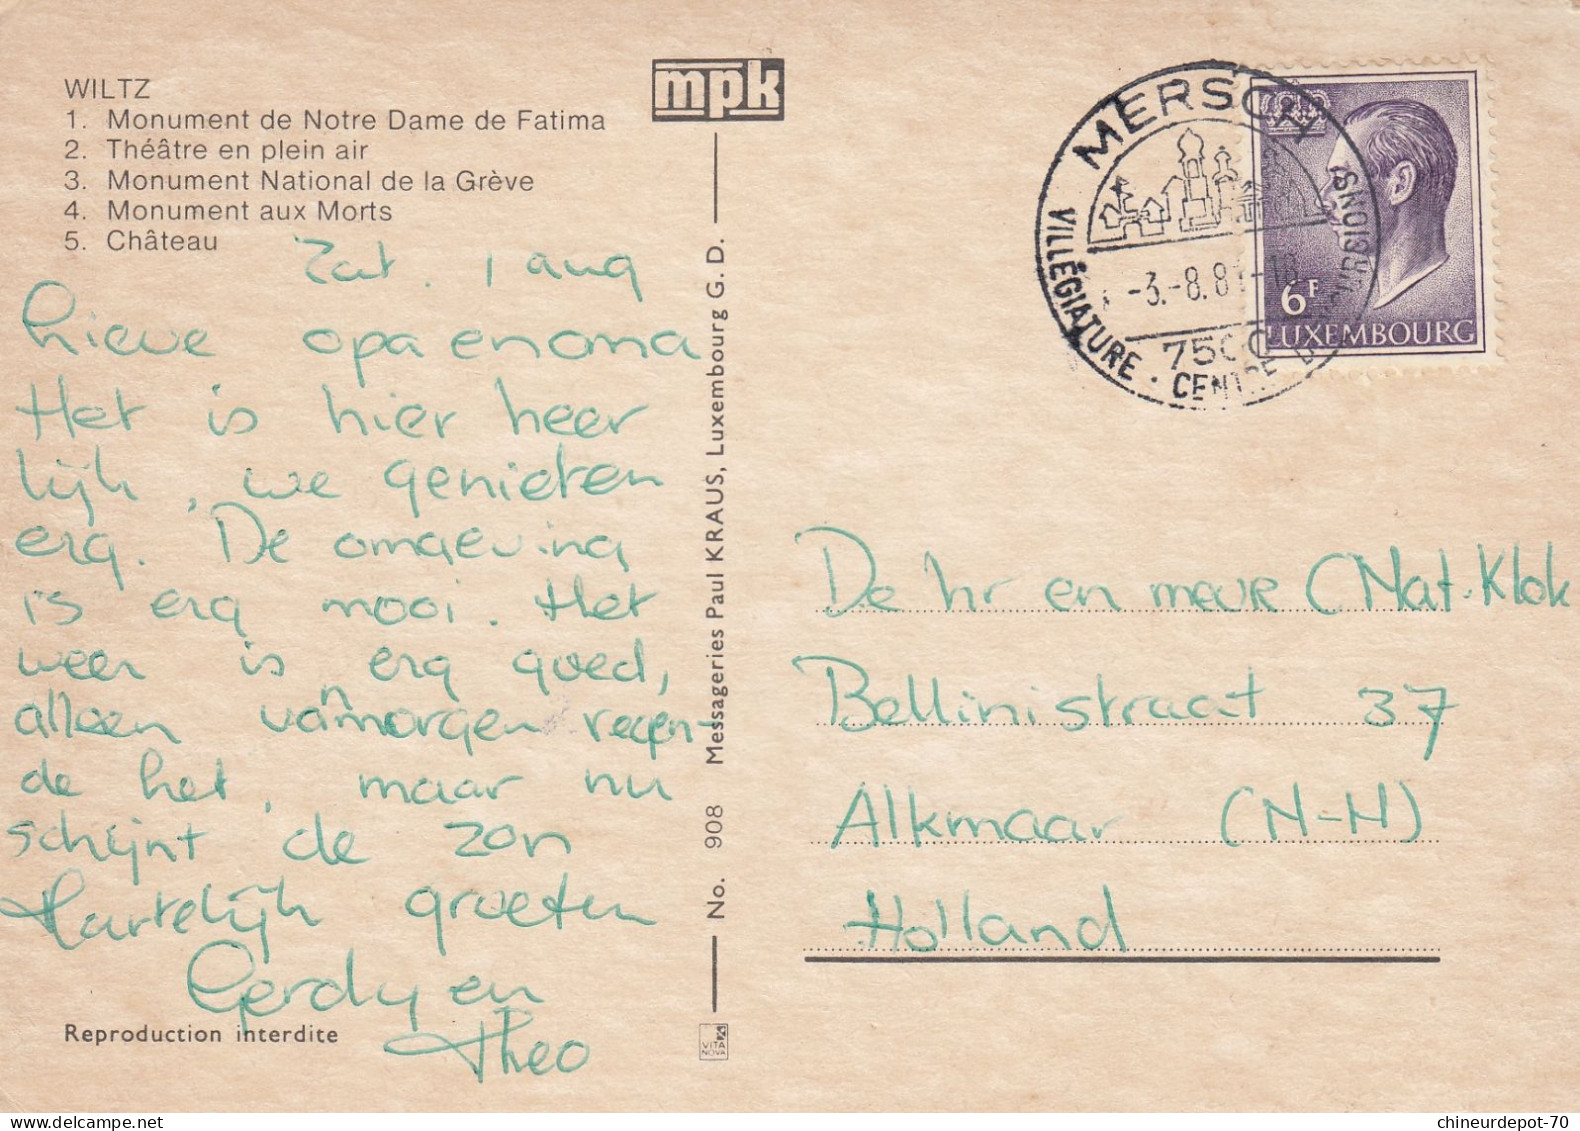 WILTZ
1. Monument de Notre Dame de Fatima
2. Théâtre en plein air
3. Monument National de la Grève
4. Monument aux Morts
5. Château
mpk
MERSCH
-3.-8.81-18
7500
VILLÉGIATURE · CENTRE D'EXCURSIONS
6F
LUXEMBOURG
Zat. 1 aug
Lieve opa en oma
Het is hier heer
lijk, we genieten
erg. De omgeving
is erg mooi. Het
weer is erg goed,
alleen vanmorgen regen-
de het, maar nu
schijnt de zon
Hartelijk groeten
Gerdy en
Theo
Reproduction interdite
No. 908 Messageries Paul KRAUS, Luxembourg G. D.
VITA
NOVA
De hr en mevr C Nat-Klok
Bellinistraat 37
Alkmaar (N-H)
Holland
chineurdepot-70